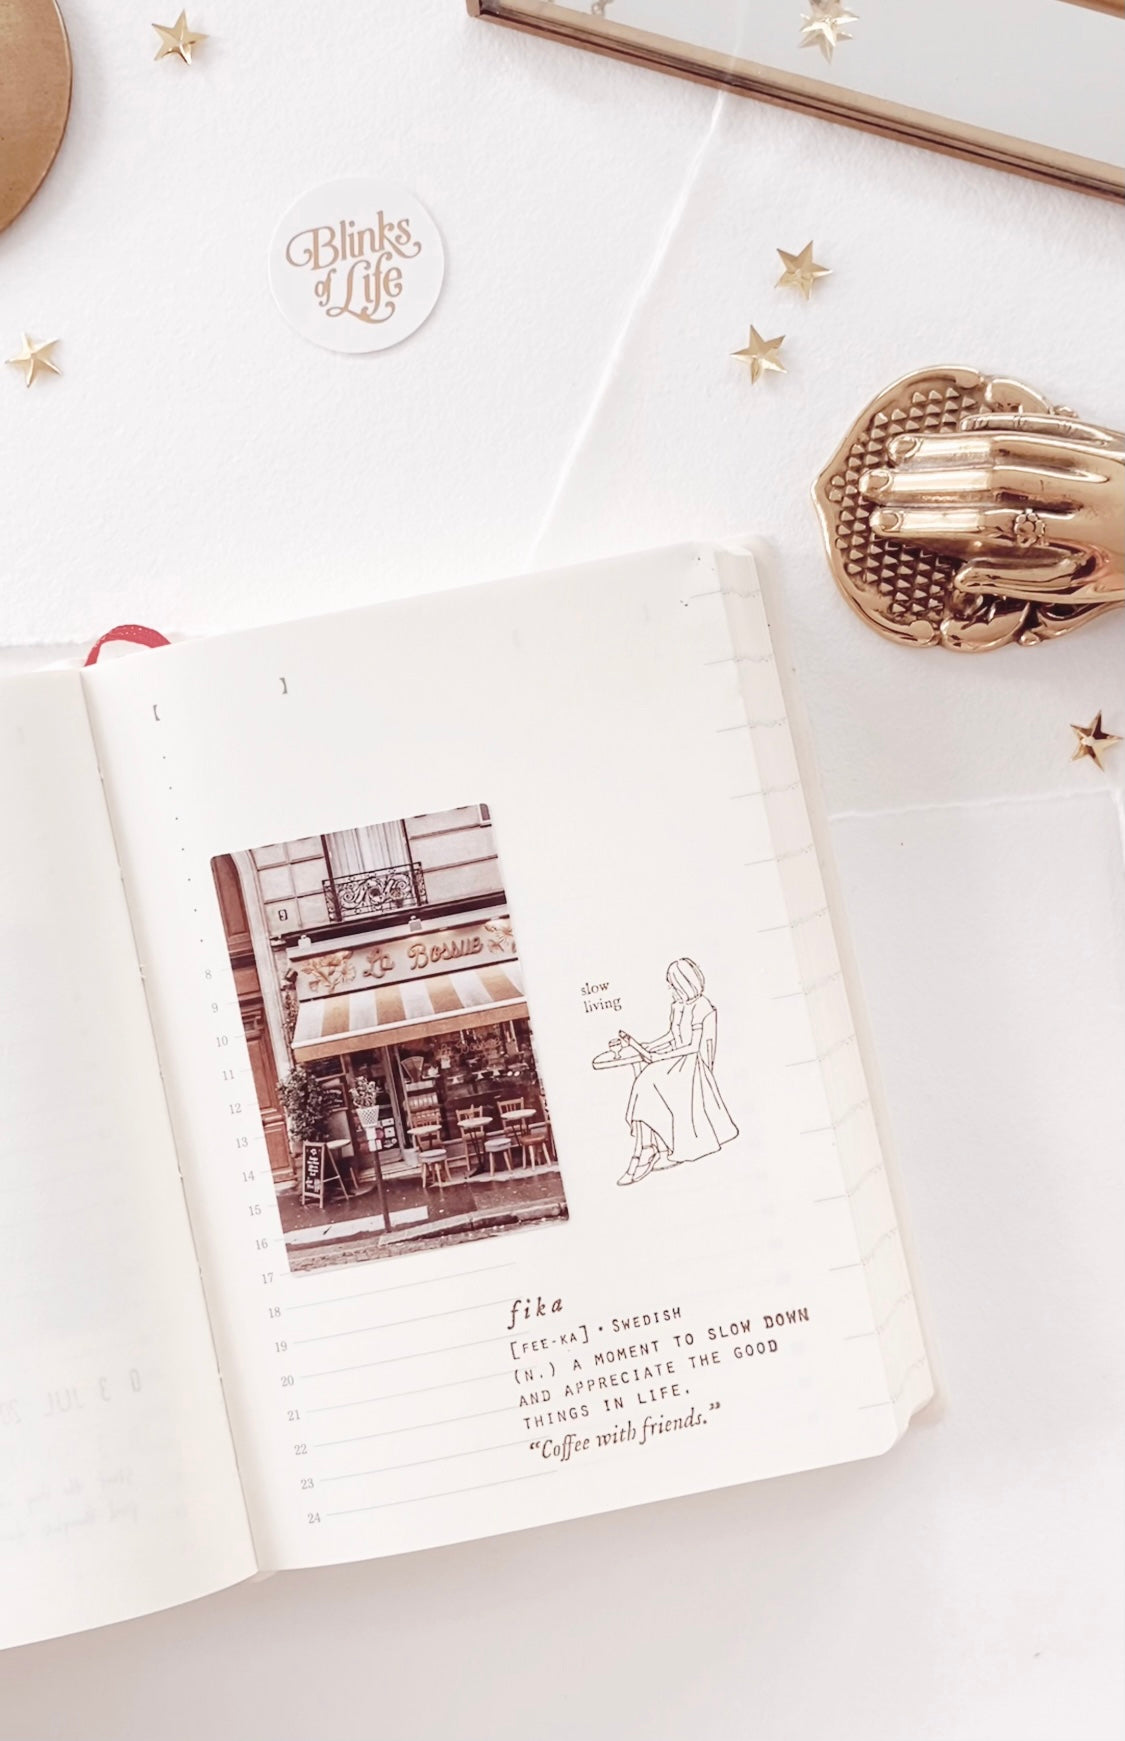 Blinks
of Life
【
】
9
La Bossue
slow
living
8
9
10
11
12
13
14
15
16
17
18
19
20
21
22
23
24
fika
[FEE-KA] • SWEDISH
(N.) A MOMENT TO SLOW DOWN
AND APPRECIATE THE GOOD
THINGS IN LIFE.
“Coffee with friends.”